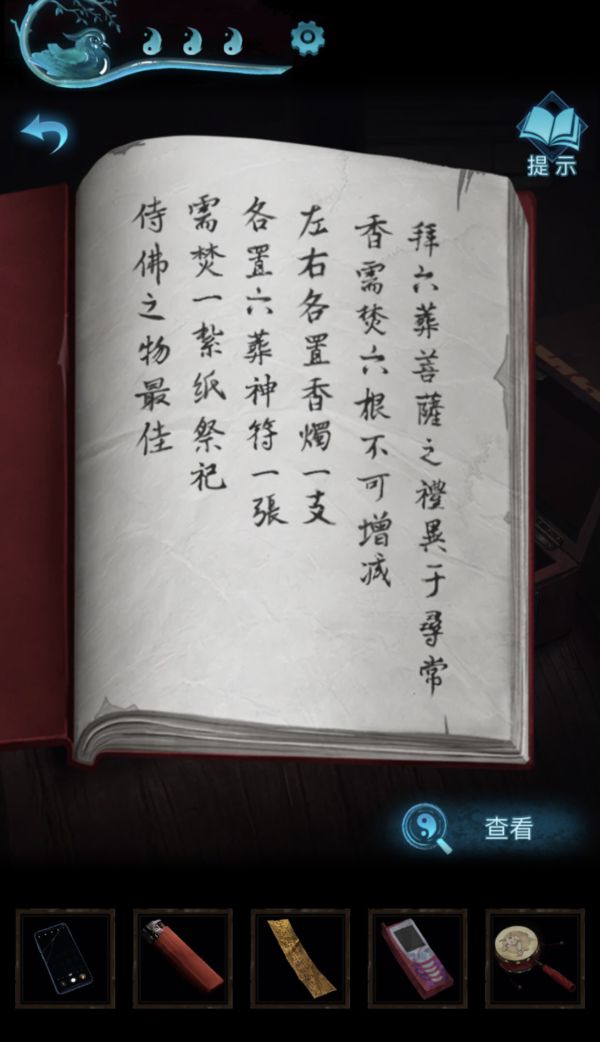 提示
拜六葬菩薩之禮異于尋常
香需焚六根不可增减
左右各置香燭一支
各置六葬神符一張
需焚一紮纸祭祀
侍佛之物最佳
查看